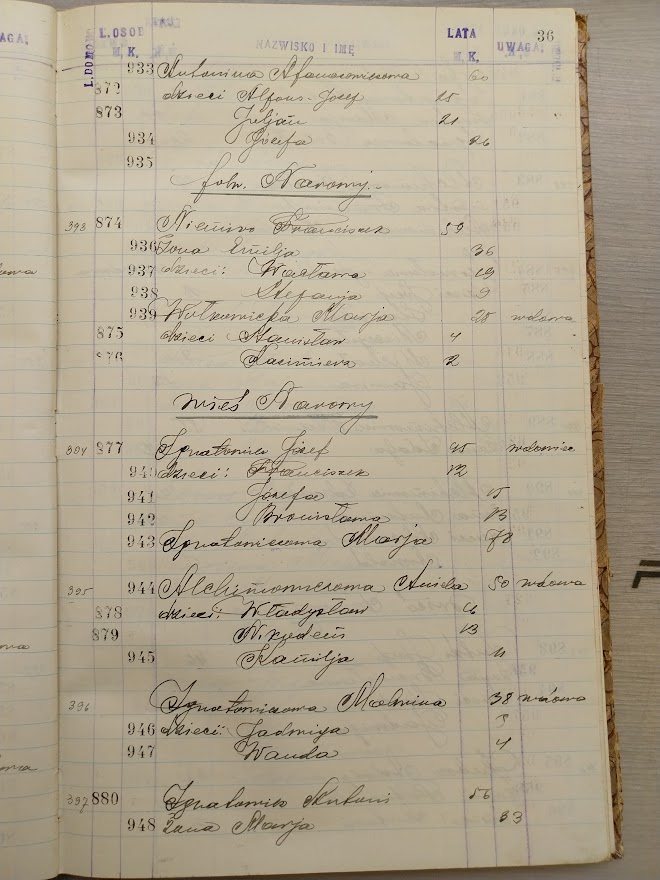 36
L. DOMO L. OSOB NAZWISKO I IMĘ LATA UWAGA!
M. K. M. K.
933 Antonina Afanasowiczowa 60
872 dzieci Alfons-Józef 15
873 Juljan 21
934 Józefa 26
935
folw. Naromy
393 874 Franciszek 59
936 Żona Emilja 36
937 dzieci: Wacława 19
938 Stefanja 9
939 Witkowicka Marja 25 wdowa
875 dzieci Stanisław 4
876 Kazimiera 2
wieś Naromy
394 877 Ignatowicz Józef 45 wdowiec
940 dzieci: Franciszek 12
941 Józefa 15
942 Bronisława 13
943 Ignatowiczowa Marja 78
395 944 Alchimowiczowa Aniela 50 wdowa
878 dzieci: Władysław
879 Nikodem 13
945 Kamilja 11
396 Ignatowiczowa Malwina 38 wdowa
946 dzieci: Jadwiga
947 Wanda 4
397 880 Ignatowicz Antoni 56
948 Żona Marja 33